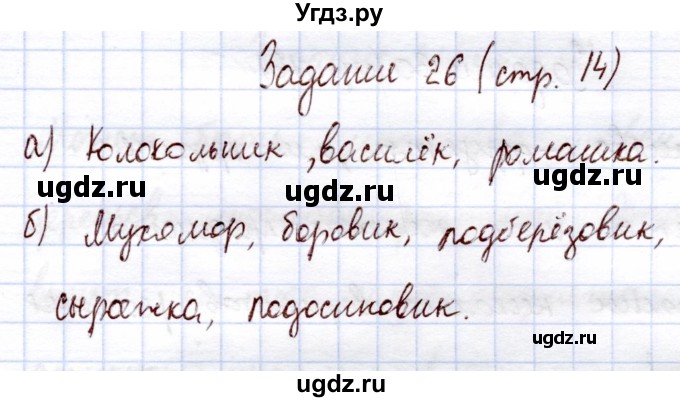 Угдз.ру
Задание 26 (стр. 14)
а) Колокольчик, василёк, ромашка.
ugdz.ru ugdz.ru
б) Мухомор, боровик, подберёзовик,
ugdz.ru ugdz.ru
сыроежка, подосиновик.
ugdz.ru
ugdz.ru